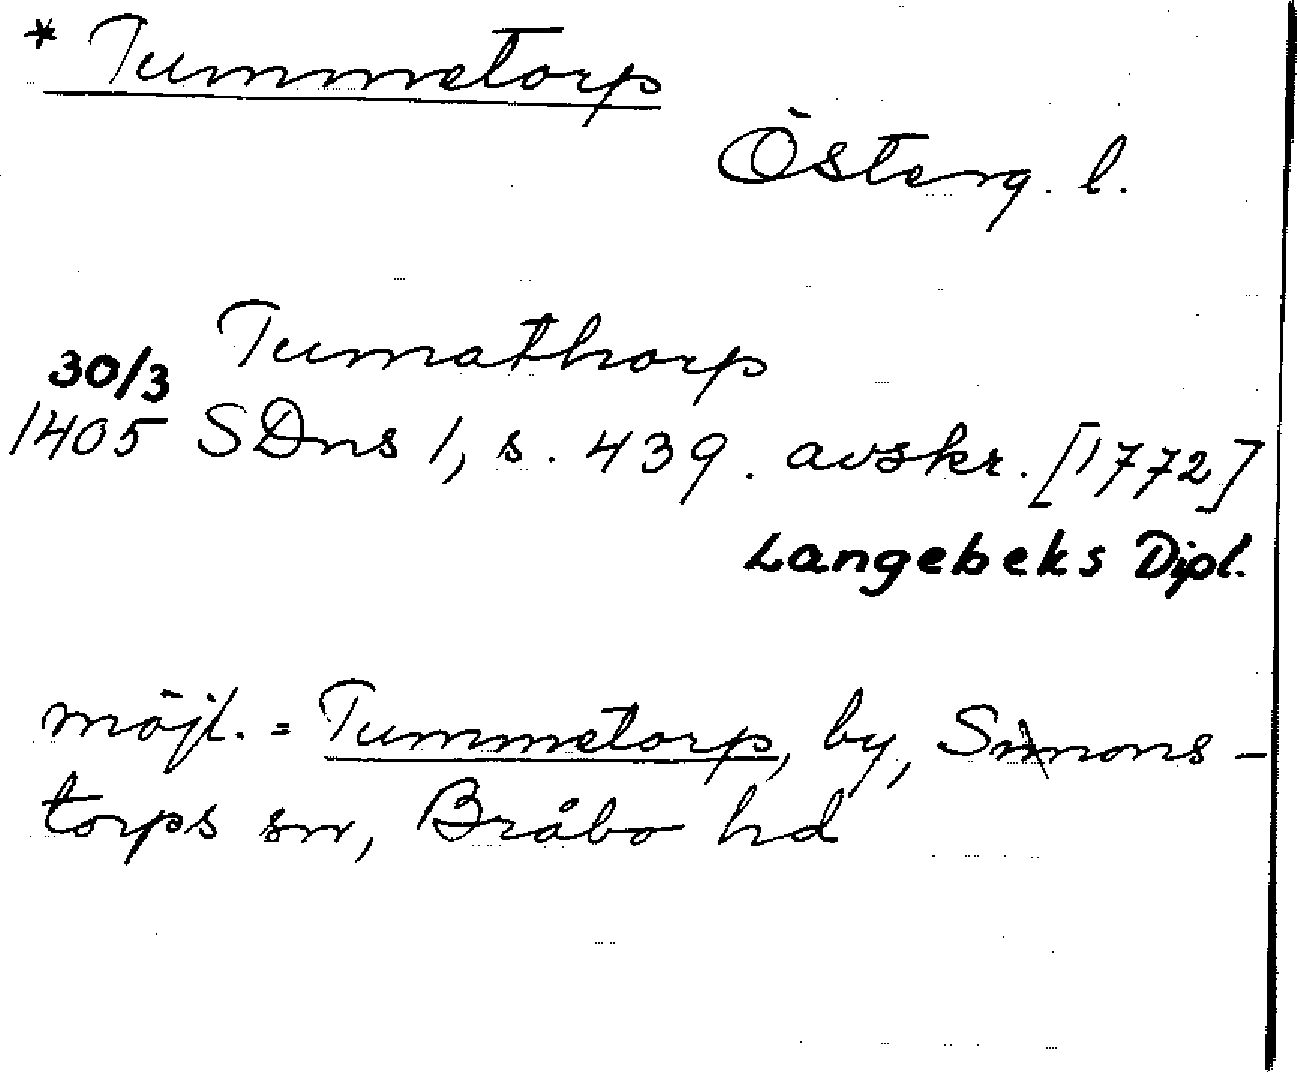 * Tummetorp
Österg. l.
Tumathorp
30/3
1405 SDns 1, s. 439. avskr. [1772]
Langebeks Dipl.
möjl. = Tummetorp, by, Simons-
torps sn, Bråbo hd